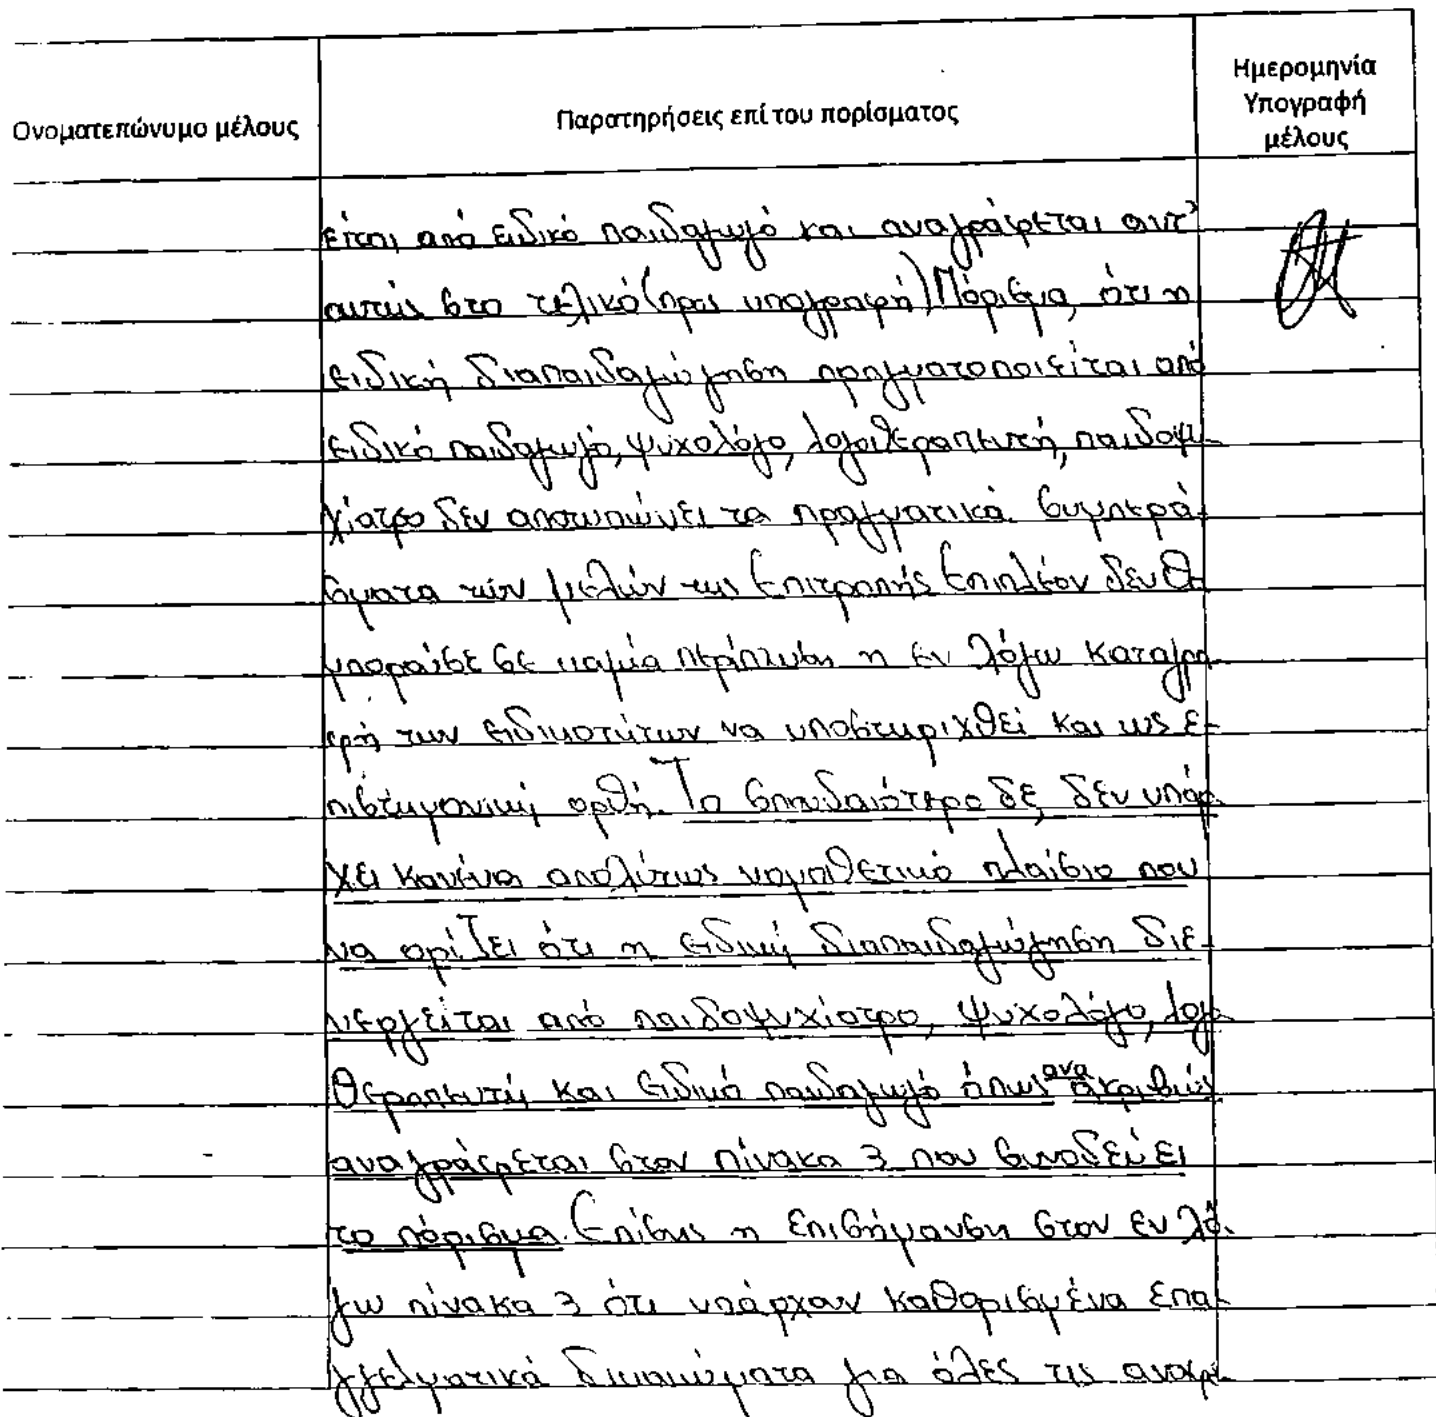 Ονοματεπώνυμο μέλους
Παρατηρήσεις επί του πορίσματος
Ημερομηνία
Υπογραφή
μέλους
είται από ειδικό παιδαγωγό και αναγράφεται αντ'
αυτής στο τελικό (προς υπογραφή) Πόρισμα, ότι η
ειδική διαπαιδαγώγηση πραγματοποιείται από
ειδικό παιδαγωγό, ψυχολόγο, λογοθεραπευτή, παιδοψυ-
χίατρο δεν αποτυπώνει τα πραγματικά συμπερά-
σματα των μελών της Επιτροπής Επιπλέον δεν θα
μπορούσε σε καμία περίπτωση η εν λόγω καταγρα-
φή των ειδικοτήτων να υποστηριχθεί και ως ε-
πιστημονική ορθή. Το σπουδαιότερο δε, δεν υπάρ-
χει κανένα απολύτως νομοθετικό πλαίσιο που
να ορίζει ότι η ειδική διαπαιδαγώγηση διε-
νεργείται από παιδοψυχίατρο, ψυχολόγο, λογο-
θεραπευτή και ειδικό παιδαγωγό όπως ακριβώς
αναγράφεται στον πίνακα 3 που συνοδεύει
το πόρισμα. Επίσης η επισήμανση στον εν λό-
γω πίνακα 3 ότι υπάρχαν καθορισμένα επα-
γγελματικά δικαιώματα για όλες τις